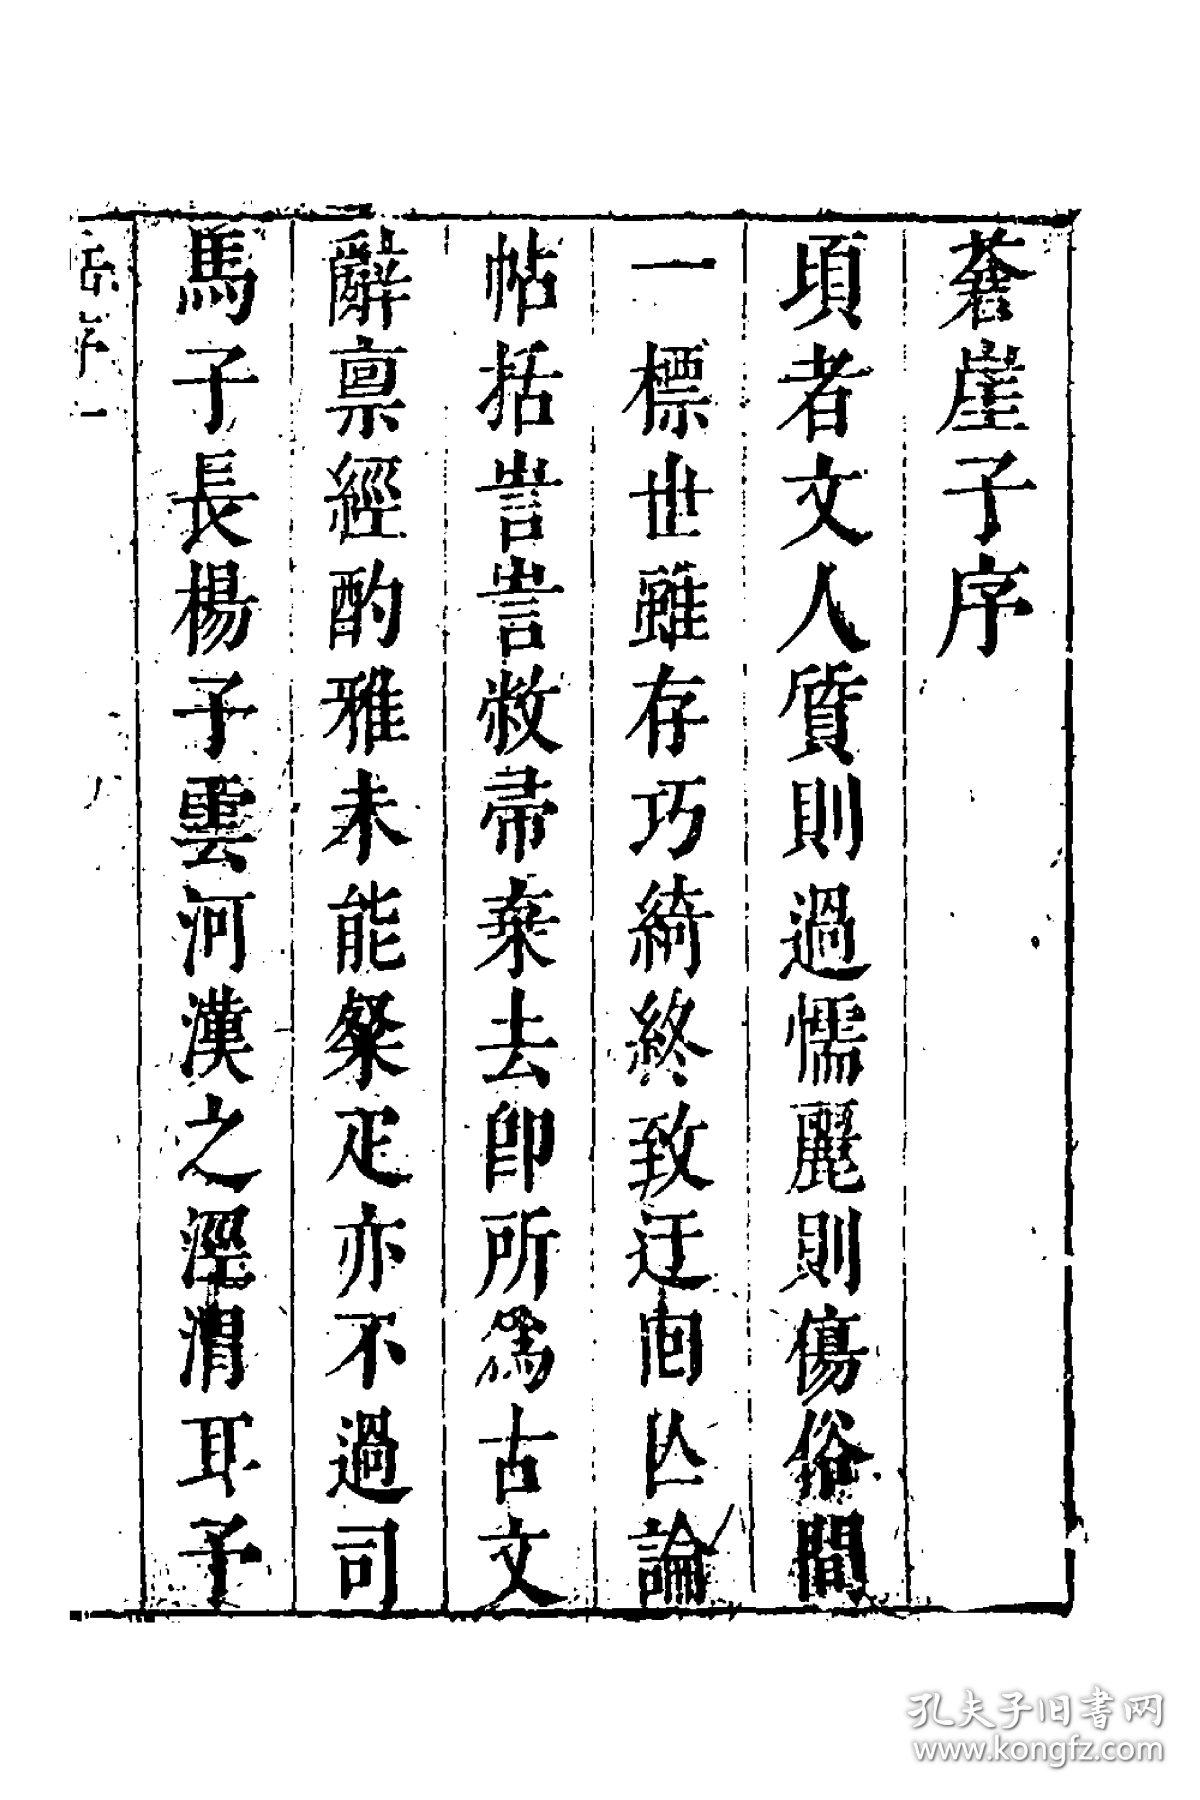 蒼崖子序
頃者文人質則過懦麗則傷俗間
一標世雖存巧綺終致迂囘亾論
帖括訾訾敝帚棄去卽所為古文
辭禀經酌雅未能粲疋亦不過司
馬子長楊子雲河漢之涇渭耳予
序一
孔夫子旧書网
www.kongfz.com